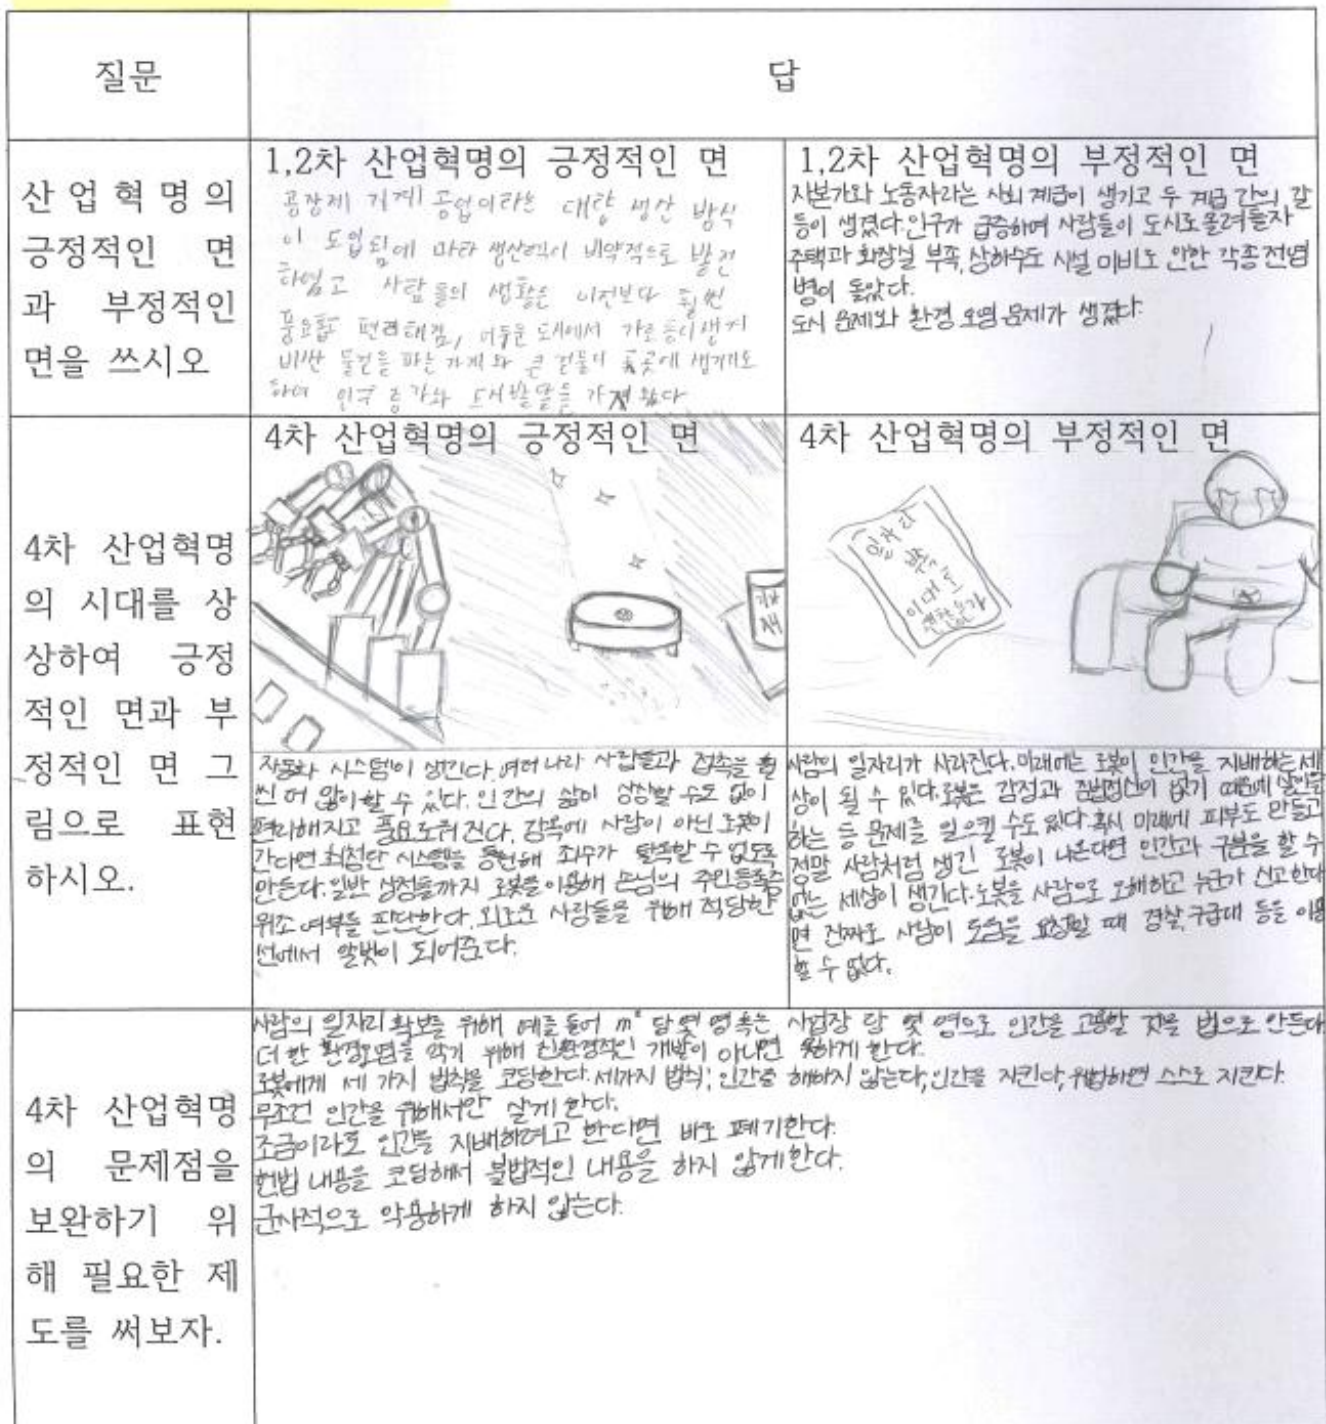 질문
답
산업혁명의
긍정적인 면
과 부정적인
면을 쓰시오
1,2차 산업혁명의 긍정적인 면
공장제 기계 공업이라는 대량 생산 방식
이 도입됨에 따라 생산력이 비약적으로 발전
하였고 사람들의 생활은 이전보다 훨씬
풍요롭 편리해짐, 어두운 도시에서 가로등이 생기
비싼 물건을 파는 가게와 큰 건물이 곳곳에 생기기도
하여 인구 증가와 도시발달을 가져왔다
1,2차 산업혁명의 부정적인 면
자본가와 노동자라는 사회 계급이 생기고 두 계급 간의 갈
등이 생겼다. 인구가 급증하며 사람들이 도시로 몰려들자
주택과 화장실 부족, 상하수도 시설 미비로 인한 각종 전염
병이 돌았다.
도시 문제와 환경 오염 문제가 생겼다.
4차 산업혁명
의 시대를 상
상하여 긍정
적인 면과 부
정적인 면 그
림으로 표현
하시오.
4차 산업혁명의 긍정적인 면
자동화 시스템이 생긴다. 여러 나라 사람들과 접속을 훨
씬 더 많이할 수 있다. 인간의 삶이 상상할 수도 없이
편리해지고 풍요로워진다. 감옥에 사람이 아닌 로봇이
간다면 최첨단 시스템을 동원해 죄수가 탈옥할 수 없도록
만든다. 일반 상점들까지 로봇을 이용해 손님의 주민등록증
위조 여부를 판단한다. 외로운 사람들을 위해 적당한
선에서 말벗이 되어준다.
4차 산업혁명의 부정적인 면
일자리
부족
이대로
괜찮은가
사람의 일자리가 사라진다. 미래에는 로봇이 인간을 지배하는 세
상이 될 수 있다. 로봇은 감정과 준법정신이 없기 때문에 살인을
하는 등 문제를 일으킬 수도 있다. 혹시 미래에 피부도 만들고
정말 사람처럼 생긴 로봇이 나온다면 인간과 구분을 할 수
없는 세상이 생긴다. 로봇을 사람으로 오해하고 누군가 신고한다
면 진짜로 사람이 도움을 요청할 때 경찰, 구급대 등을 이용
할 수 없다.
4차 산업혁명
의 문제점을
보완하기 위
해 필요한 제
도를 써보자.
사람의 일자리 확보를 위해 예를 들어 m² 당 몇 명 혹은 사업장 당 몇 명으로 인간을 고용할 것을 법으로 만든다
더 한 환경오염을 막기 위해 친환경적인 개발이 아니면 못하게 한다.
로봇에게 세 가지 법칙을 코딩한다. 세가지 법칙; 인간을 해하지 않는다, 인간을 지킨다, 위험하면 스스로 지킨다.
무조건 인간을 위해서만 살게 한다.
조금이라도 인간을 지배하려고 한다면 바로 폐기한다.
헌법 내용을 코딩해서 불법적인 내용을 하지 않게 한다.
군사적으로 악용하게 하지 않는다.